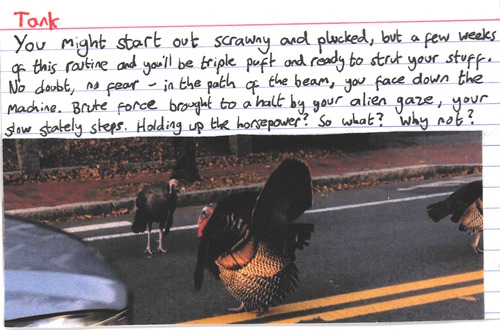 Tank
You might start out scrawny and plucked, but a few weeks
of this routine and you'll be triple puft and ready to strut your stuff.
No doubt, no fear - in the path of the beam, you face down the
machine. Brute force brought to a halt by your alien gaze, your
slow stately steps. Holding up the horsepower? So what? Why not?